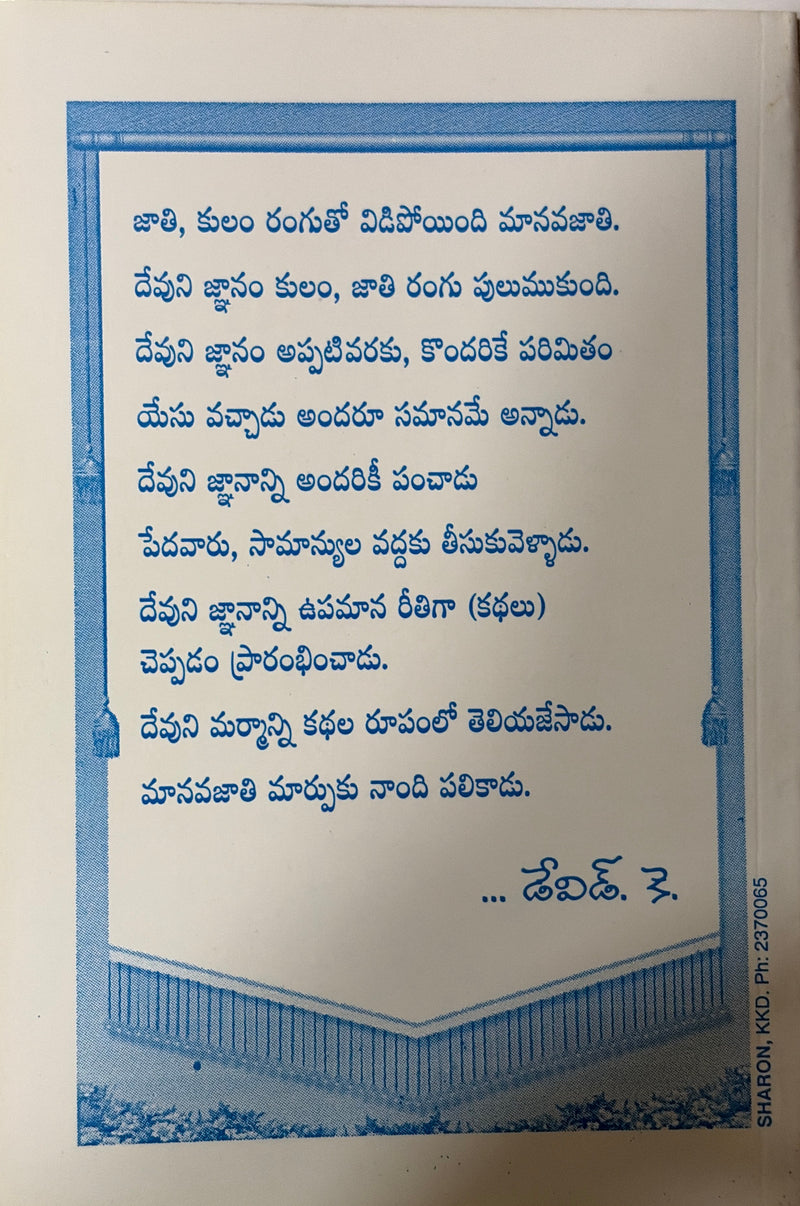 జాతి, కులం రంగుతో విడిపోయింది మానవజాతి.
దేవుని జ్ఞానం కులం, జాతి రంగు పులుముకుంది.
దేవుని జ్ఞానం అప్పటివరకు, కొందరికే పరిమితం
యేసు వచ్చాడు అందరూ సమానమే అన్నాడు.
దేవుని జ్ఞానాన్ని అందరికీ పంచాడు
పేదవారు, సామాన్యుల వద్దకు తీసుకువెళ్ళాడు.
దేవుని జ్ఞానాన్ని ఉపమాన రీతిగా (కథలు)
చెప్పడం ప్రారంభించాడు.
దేవుని మర్మాన్ని కథల రూపంలో తెలియజేసాడు.
మానవజాతి మార్పుకు నాంది పలికాడు.
... డేవిడ్. కె.
SHARON, KKD. Ph: 2370065